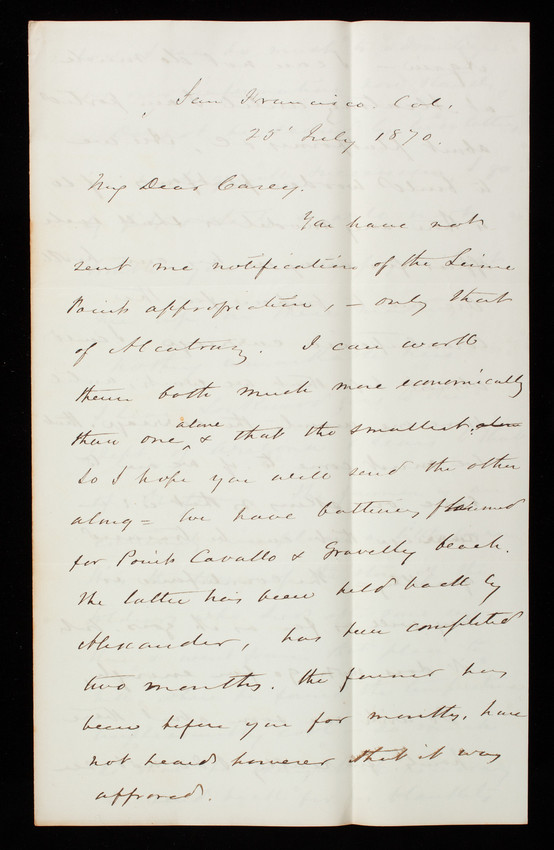 San Francisco. Cal.
25 July 1870.
My Dear Casey.
You have not
sent me notification of the Lime
Point appropriation, – only that
of Alcatraz. I can work
them both much more economically
than one alone & that the smallest.
So I hope you will send the other
along = We have batteries planned
for Point Cavallo & Gravelly beach.
The latter has been held back by
Alexander, has been completed
two months. The former has
been before you for months, have
not heard however that it was
approved.